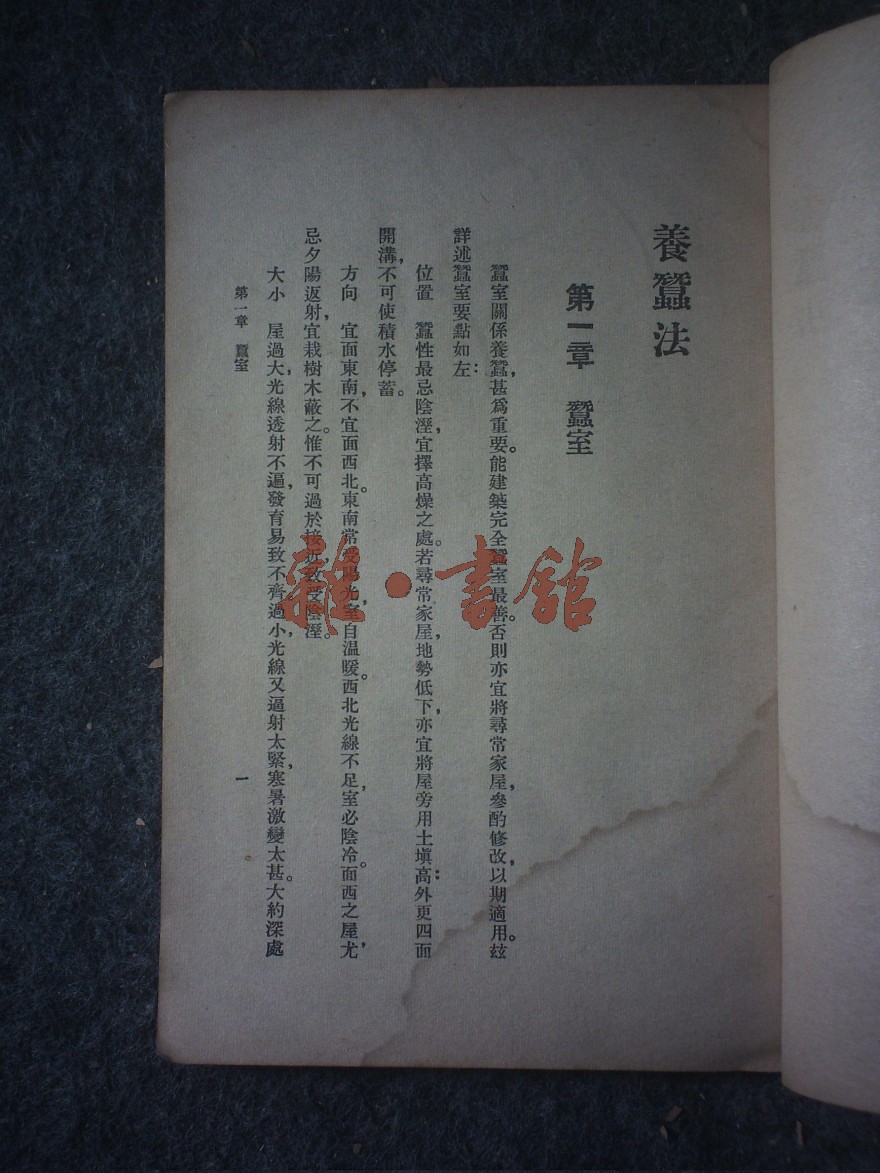 養蠶法
第一章 蠶室
蠶室關係養蠶,甚爲重要。能建築完全蠶室最善。否則亦宜將尋常家屋,參酌修改,以期適用。玆
詳述蠶室要點如左:
位置 蠶性最忌陰溼,宜擇高燥之處。若尋常家屋,地勢低下,亦宜將屋旁用土塡高:外更四面
開溝,不可使積水停蓄。
方向 宜面東南,不宜面西北。東南常受陽光,室自温暖。西北光線不足,室必陰冷。面西之屋,尤
忌夕陽返射,宜栽樹木蔽之。惟不可過於接近,致受陰溼。
大小 屋過大,光線透射不逼,發育易致不齊,過小,光線又逼射太緊,寒暑激變太甚。大約深處
第一章 蠶室
一
雜·書館